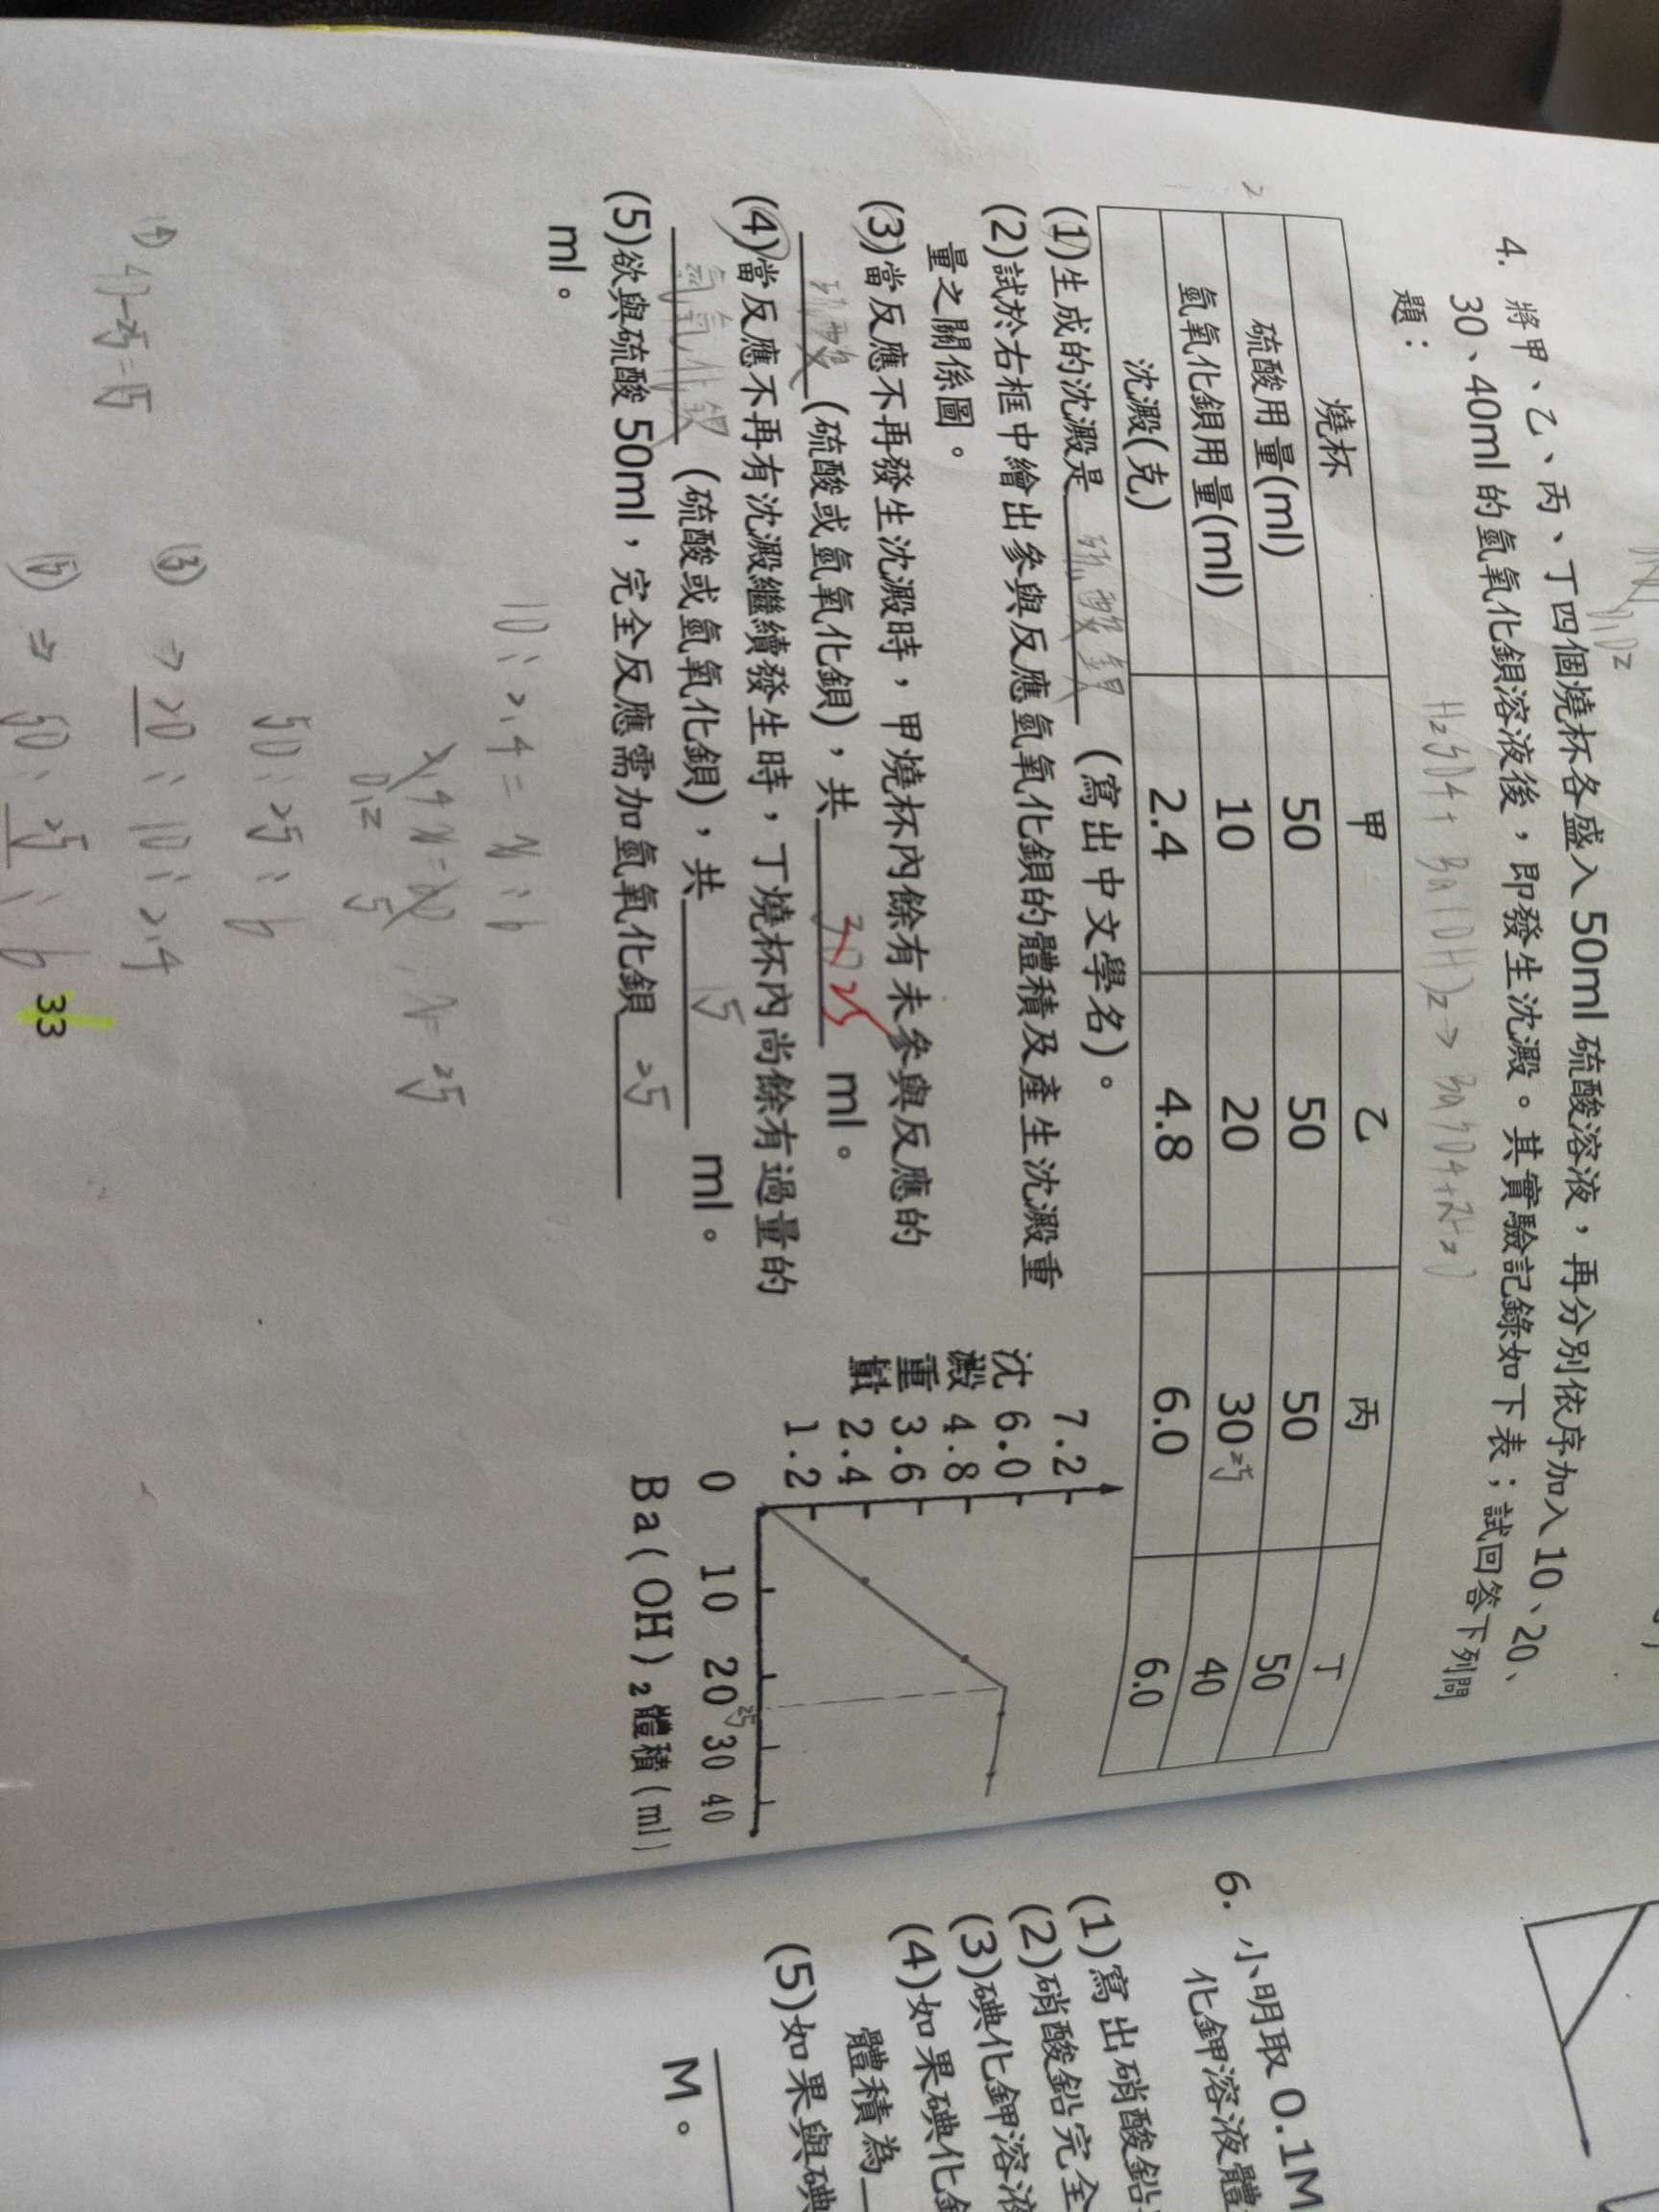 4. 將甲、乙、丙、丁四個燒杯各盛入 50ml 硫酸溶液，再分別依序加入 10、20、
30、40ml 的氫氧化鋇溶液後，即發生沈澱。其實驗記錄如下表；試回答下列問
題：
H2SO4 + Ba(OH)2 → BaSO4+2H2O
燒杯 甲 乙 丙 丁
硫酸用量(ml) 50 50 50 50
氫氧化鋇用量(ml) 10 20 30 25 40
沈澱(克) 2.4 4.8 6.0 6.0
(1)生成的沈澱是 硫酸鋇 (寫出中文學名)。
(2)試於右框中繪出參與反應氫氧化鋇的體積及產生沈澱重
量之關係圖。
(3)當反應不再發生沈澱時，甲燒杯內餘有未參與反應的
硫酸 (硫酸或氫氧化鋇)，共 30 ml。
(4)當反應不再有沈澱繼續發生時，丁燒杯內尚餘有過量的
氫氧化鋇 (硫酸或氫氧化鋇)，共 15 ml。
(5)欲與硫酸 50ml，完全反應需加氫氧化鋇 25
ml。
沈澱重量
7.2
6.0
4.8
3.6
2.4
1.2
0 10 20 25 30 40
Ba(OH)2 體積(ml)
10 : 2.4 = x : 6
x = 25
50 : 25 : 6
(3) → 20 : 10 : 2.4
(4) 40-25=15
(5) ⇒ 50 : 25 : 6
33
6. 小明取 0.1M
化鉀溶液體
(1)寫出硝酸鉛
(2)硝酸鉛完全
(3)碘化鉀溶液
(4)如果碘化
體積為
(5)如果與碘
M。